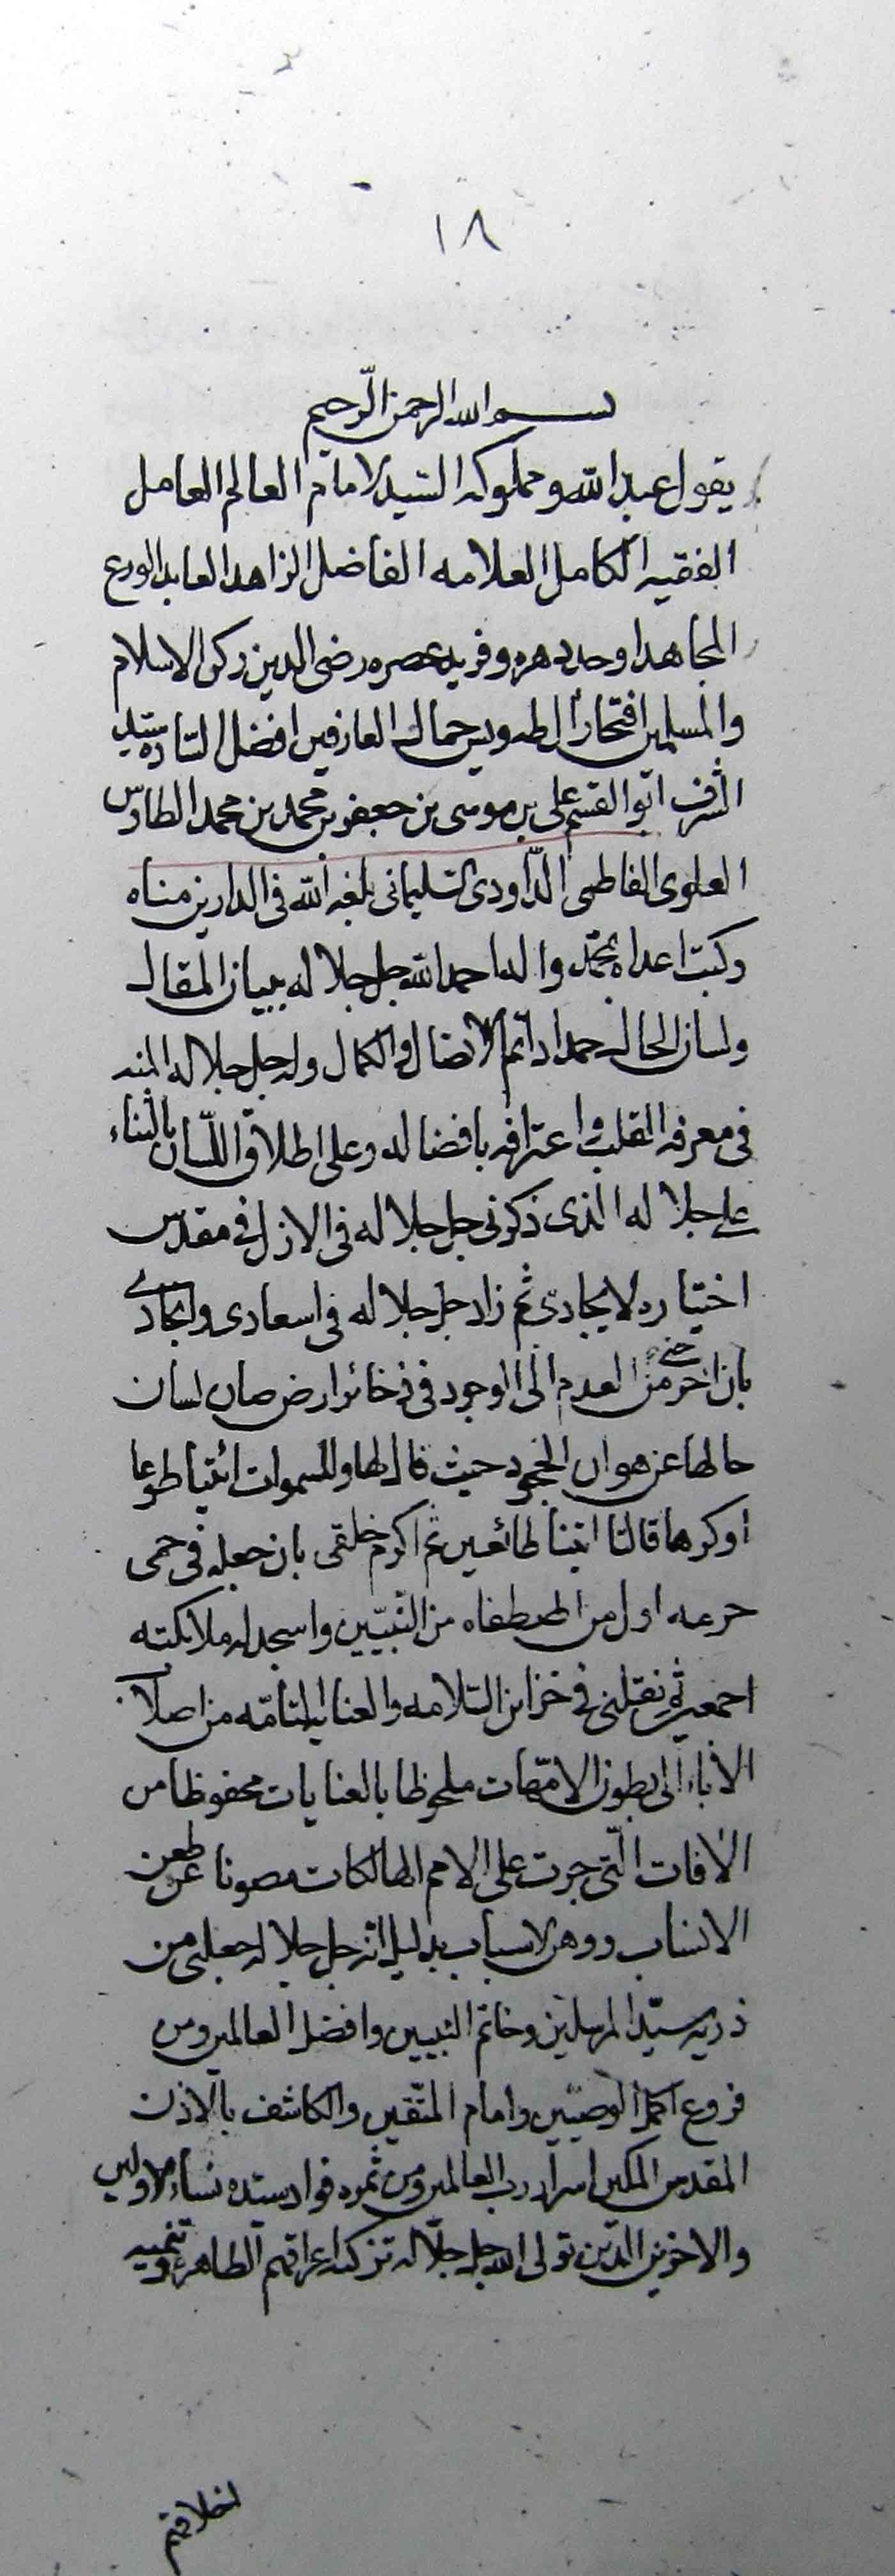 ١٨
بسم الله الرحمن الرّحيم
يقول عبد الله ومملوكه السّيد الامام العالم العامل
الفقيه الكامل العلامه الفاضل الزاهد العابد الورع
المجاهد اوحد دهره وفريد عصره رضى الدين ركن الاسلام
والمسلمين افتخار ال طه ويس جمال العارفين افضل السّاده سيّد
الشرف ابو القسم على بن موسى بن جعفر بن محمد بن محمد الطاوس
العلوى الفاطمى الدّاودى السليمانى بلغه الله فى الدارين مناه
وكبت اعداه بمحمّد واله احمد الله جل جلاله ببيان المقال
ولسان الحال حمدا دائم الاتصال والكمال وله جل جلاله المنه
فى معرفه القلب واعترافه بافضاله وعلى اطلاق اللّسان بالثناء
على جلاله الذى ذكرنى جل جلاله فى الازل فى مقدس
اختياره لايجادى ثم زاد جل جلاله فى اسعادى وانجادى
بان اخرجنى من العدم الى الوجود فى ذخائر ارض صان لسان
حالها عن هوان الجحود حيث قال لها وللسموات ائتيا طوعا
او كرها قالتا اتينا طائعين ثم اكرم خلقى بان جعله فى حمى
حرمه اول من اصطفاه من النّبيّين واسجد له ملائكته
اجمعين ثم نقلنى فى خزاين السّلامه والعنايه التامّه من اصلاب
الاباء الى بطون الامّهات ملحوظا بالعنايات محفوظا من
الافات الّتى جرت على الامم الهالكات مصونا عن طعن
الانساب ووهن الاسباب بدليل انه جل جلاله جعلنى من
ذريه سيّد المرسلين وخاتم النبيين وافضل العالمين ومن
فروع اكمل الوصيّين وامام المتّقين والكاشف بالاذن
المقدس المكين اسرار رب العالمين ومن ثمره فواد سيّده نساء الاولين
والاخرين الذين تولى الله جل جلاله تزكيه اعراقهم الطاهره وتنميه
اخلاقهم